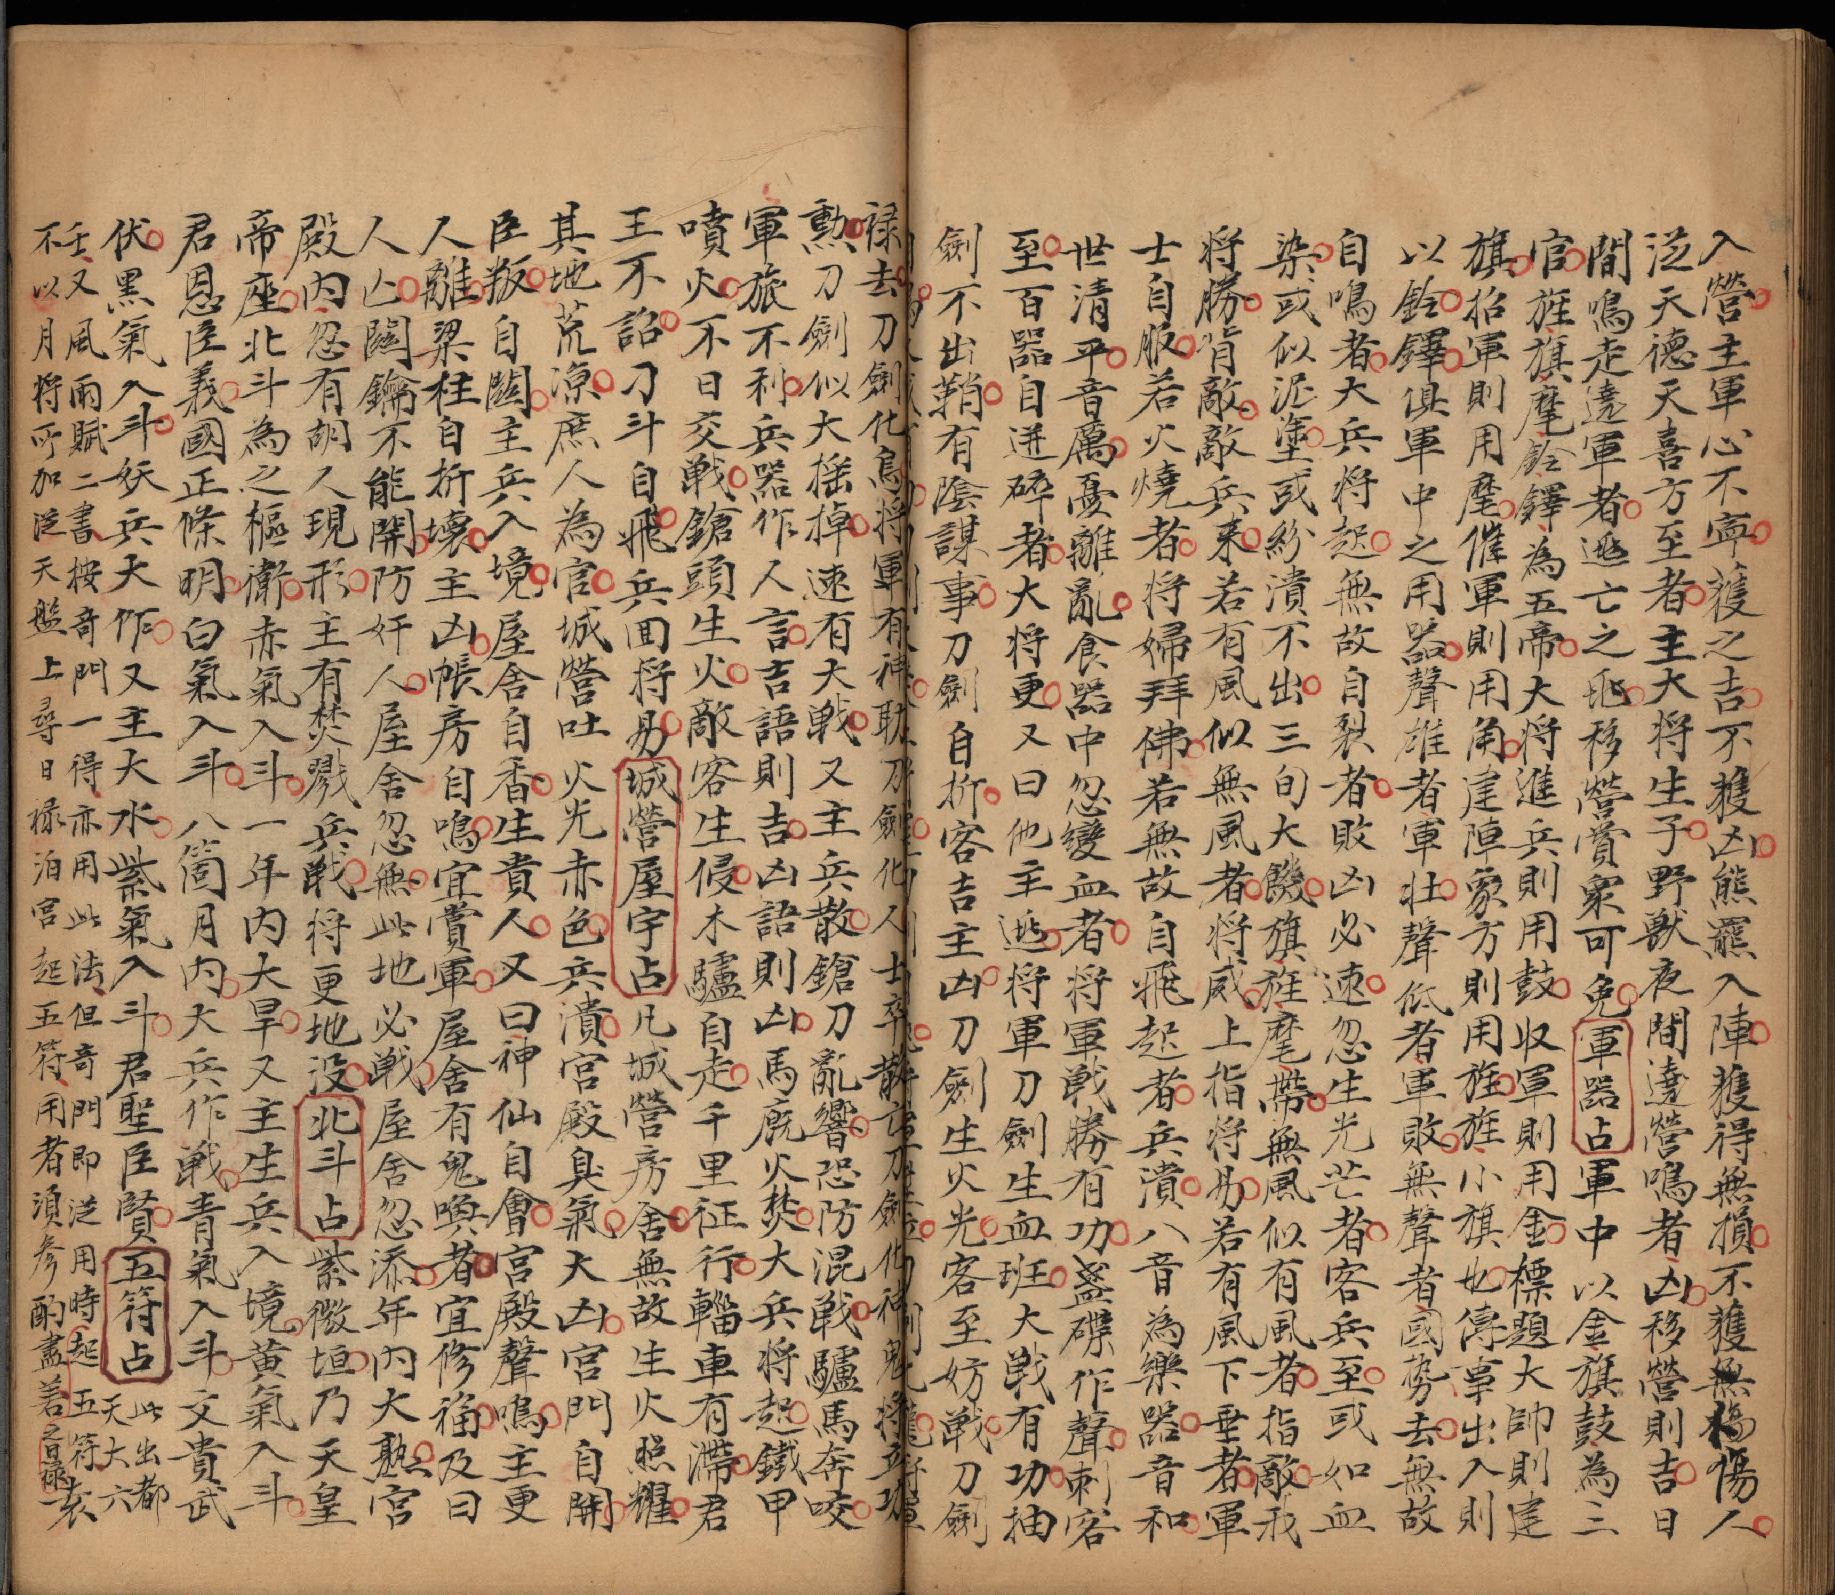 入營主軍心不寧獲之吉不獲凶熊羆入陣獲得無損不獲無禍傷人
從天德天喜方至者主大将生子野獸夜間遶營鳴者凶移營則吉日
間鳴走遶軍者逃亡之兆移營賞衆可免軍器占軍中以金旗鼓為三
官旌旗麾鈴鐸為五帝大将進兵則用鼓收軍則用金標題大帥則建
旗招軍則用麾催軍則用角建陣象方則用旌旌小旗也傳事出入則
以鈴鐸俱軍中之用器聲雄者軍壯聲低者軍敗無聲者國势去無故
自鳴者大兵将起無故自裂者敗凶必速忽生光芒者客兵至或如血
染或似泥塗或紛潰不出三旬大饑旗旌麾帶無風似有風者指敵我
将勝背敵敵兵来若有風似無風者将威上指将易若有風下垂者軍
士自服若火燒者将婦拜佛若無故自飛起者兵潰八音為樂器音和
世清平音厲憂離亂食器中忽變血者将軍戦勝有功盞碟作聲刺客
至百器自迸碎者大将更又曰他主逃将軍刀劍生血班大戦有功抽
劍不出鞘有陰謀事刀劍自折客吉主凶刀劍生火光客至妨戦刀劍
禄去刀劍化鳥将軍有神助刀劍化人士卒散亡刀劍化神鬼将立功
勲刀劍似大揺掉速有大戦又主兵散鎗刀亂響恐防混戦驢馬奔咬
軍旅不利兵器作人言吉語則吉凶語則凶馬廐火焚大兵将起鐵甲
噴火不日交戦鎗頭生火敵客生侵木驢自走千里征行輜車有滯君
王不詔刁斗自飛兵囬将易城營屋宇占凡城營房舍無故生火照耀
其地荒凉庶人為官城營吐火光赤色兵潰宮殿臭氣大凶宮門自開
臣叛自闗主兵入境屋舍自香生貴人又曰神仙自會宮殿聲鳴主更
人離梁柱自折壞主凶帳房自鳴宜賞軍屋舍有鬼喚者宜修福及曰
人亾闗鑰不能開防奸人屋舍忽無此地必戦屋舍忽添年内大熟宮
殿内忽有胡人現形主有焚戮兵戦将更地没北斗占紫微垣乃天皇
帝座北斗為之樞衛赤氣入斗一年内大旱又主生兵入境黄氣入斗
君恩臣義國正條明白氣入斗八箇月内大兵作戦青氣入斗文貴武
伏黒氣入斗妖兵大作又主大水紫氣入斗君聖臣賢五符占此出都天大六
壬又風雨賦二書按竒門一得亦用此法但竒門即從用時起五符袁
不以月将所加從天盤上尋日禄泊宮起五符用者湏參酌盡善之